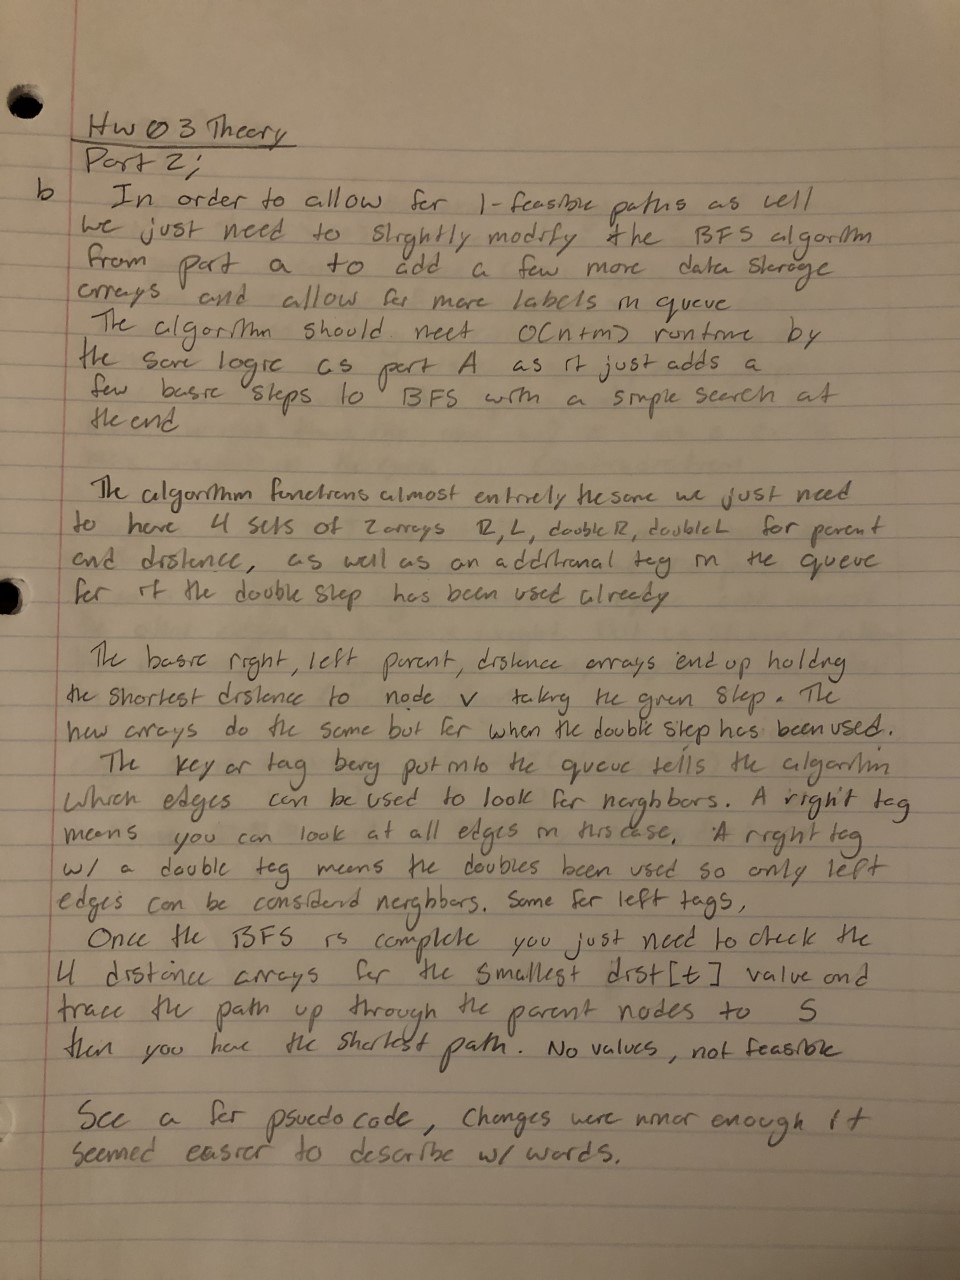 HW 03 Theory
Part 2;
b In order to allow for 1-feasible paths as well
we just need to slightly modify the BFS algorithm
from part a to add a few more data storage
arrays and allow for more labels in queue
The algorithm should meet O(n+m) runtime by
the same logic as part A as it just adds a
few basic steps to BFS with a simple search at
the end
The algorithm functions almost entirely the same we just need
to have 4 sets of 2 arrays R, L, double R, double L for parent
and distance, as well as an additional tag in the queue
for if the double step has been used already
The basic right, left parent, distance arrays end up holding
the shortest distance to node v taking the given step. The
new arrays do the same but for when the double step has been used.
The key or tag being put into the queue tells the algorithm
which edges can be used to look for neighbors. A right tag
means you can look at all edges in this case. A right tag
w/ a double tag means the doubles been used so only left
edges can be considerd neighbors. Same for left tags,
Once the BFS is complete you just need to check the
4 distance arrays for the smallest dist[t] value and
trace the path up through the parent nodes to S
then you have the shortest path. No values, not feasible
See a for psuedo code, Changes were minor enough it
seemed easier to describe w/ words.